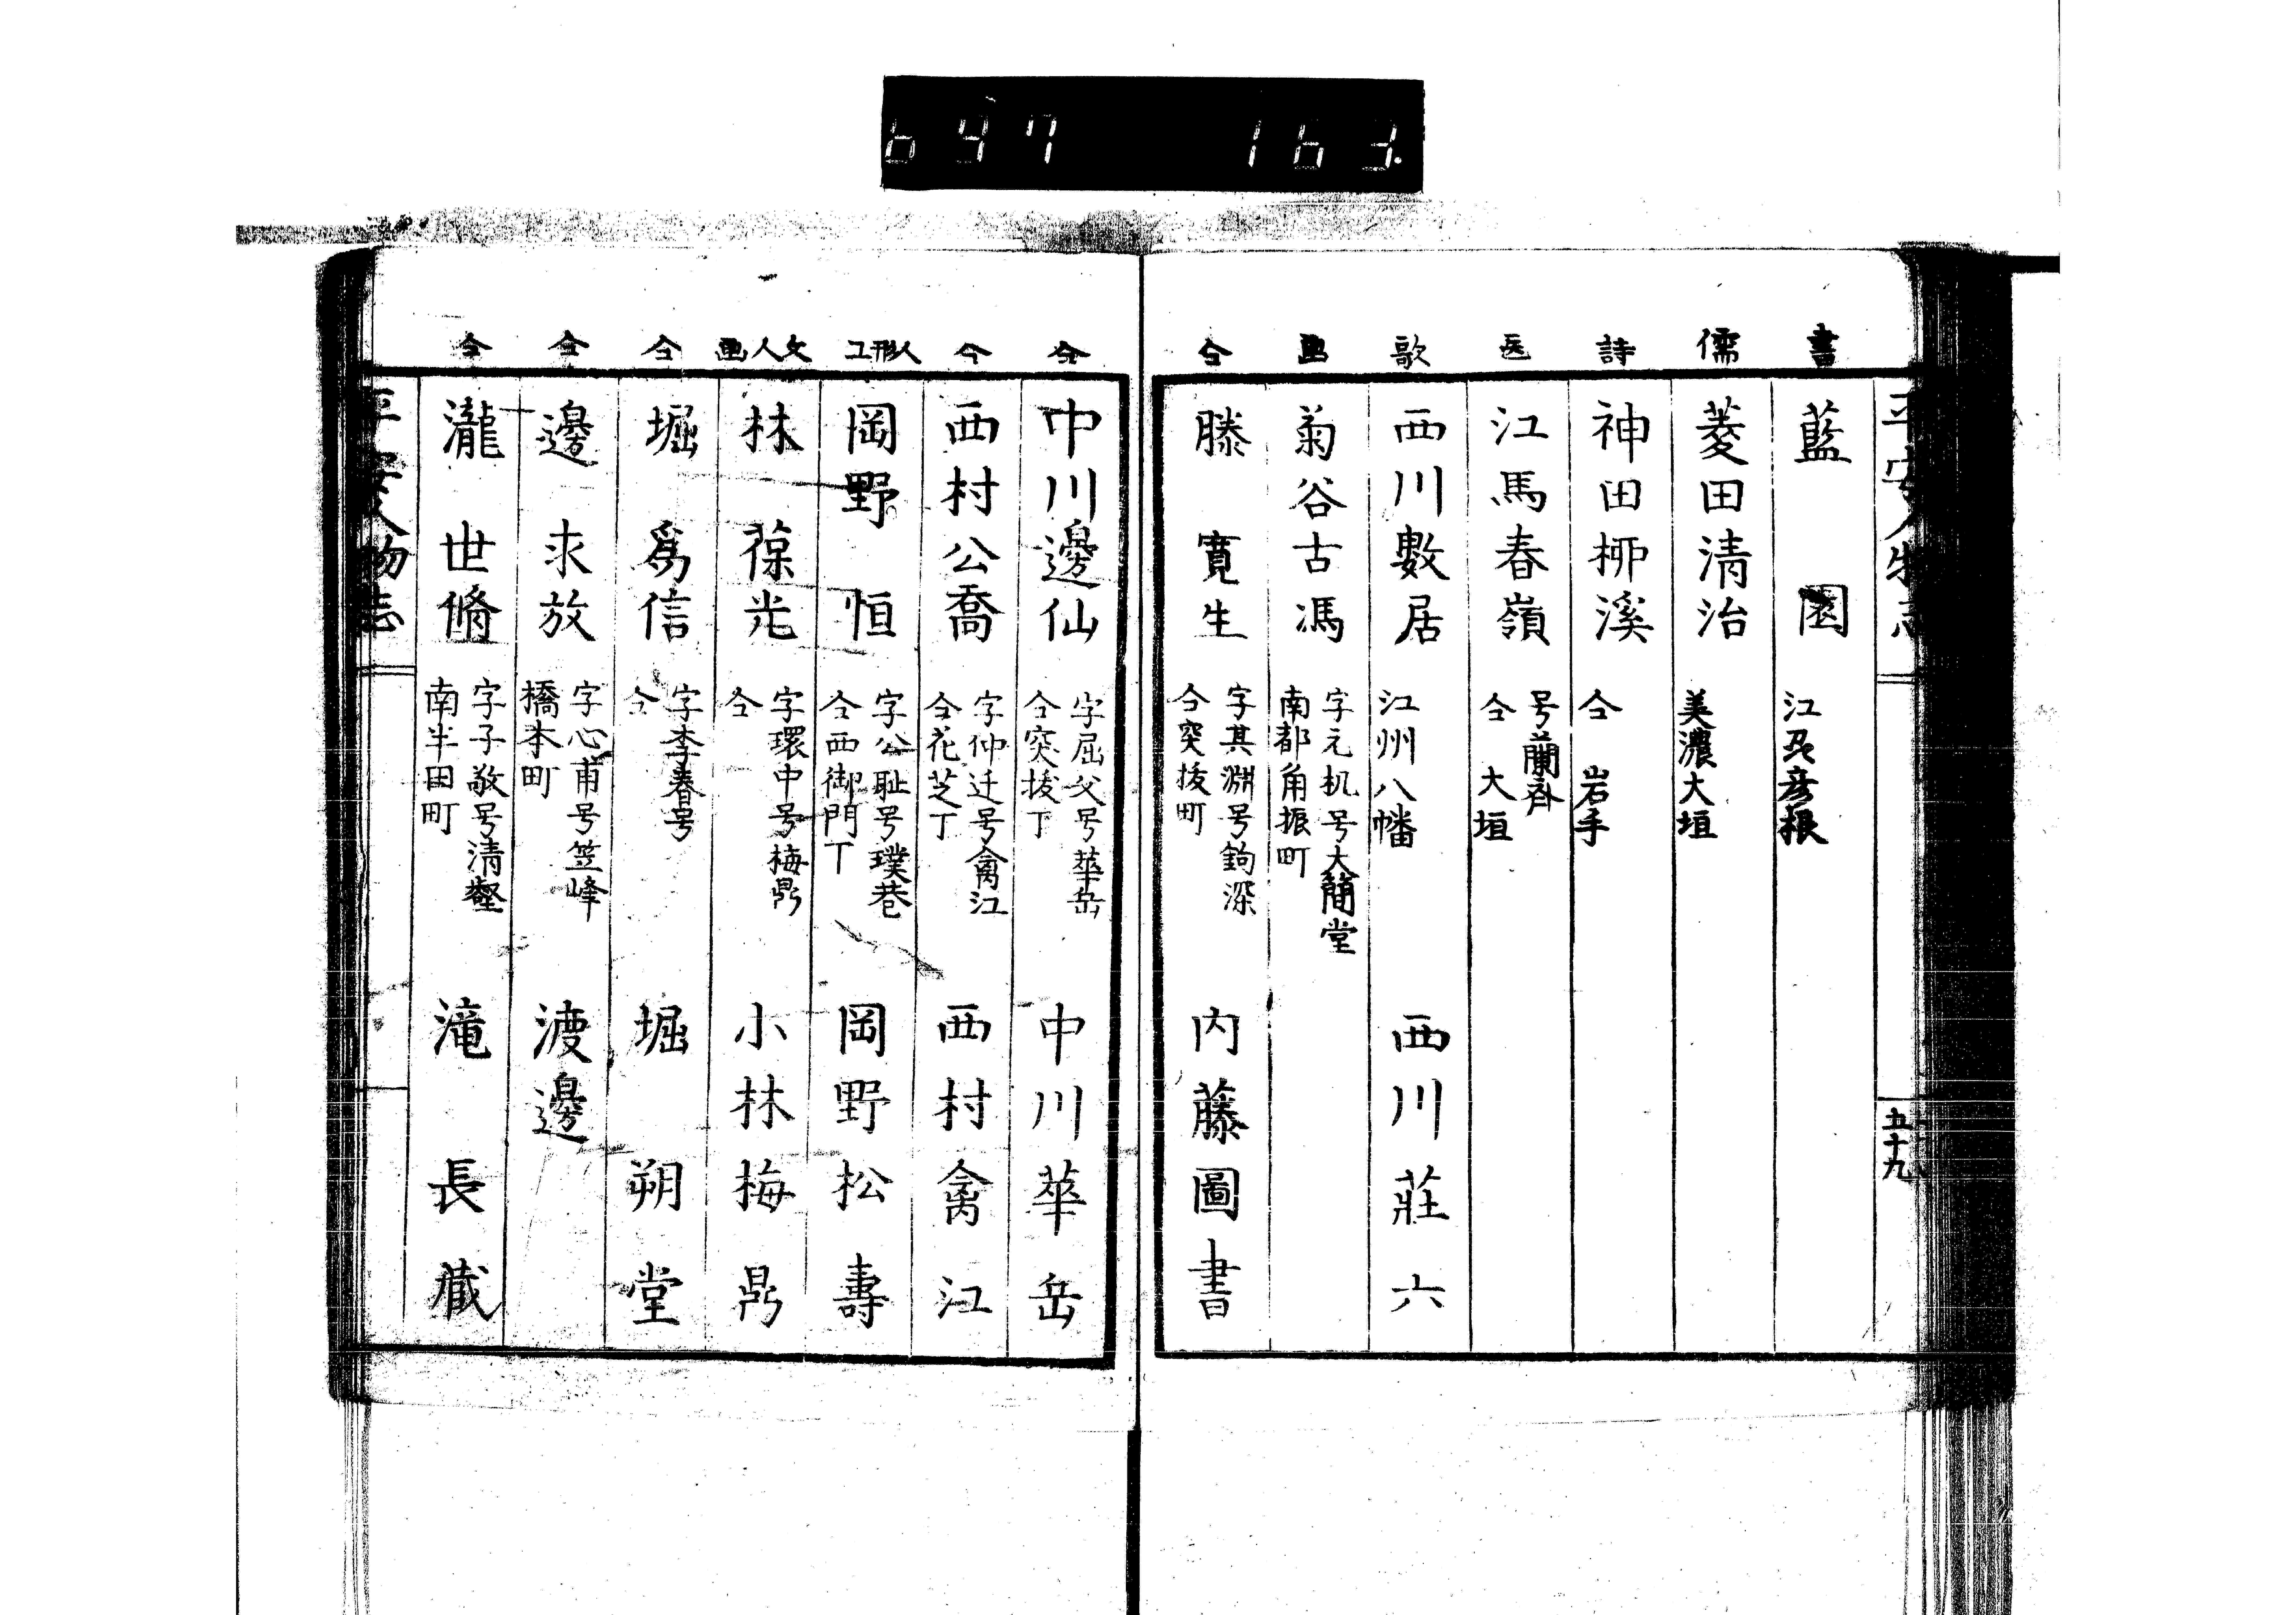 647 163.
平安人物志
五十九
書
藍園
江刕彦根
儒
菱田清治
美濃大垣
詩
神田栁溪
仝 岩手
医
江馬春嶺
号蘭斉
仝 大垣
歌
西川數居
江州八幡
西川莊六
画
菊谷古馮
字元机号大簡堂
南都角振町
仝
滕寛生
字其淵号鉤深
仝突抜町
内藤圖書
仝
中川邊仙
字屈父号華岳
仝突抜丁
中川華岳
仝
西村公喬
字仲迁号禽江
仝花芝丁
西村禽江
人形工
岡野恒
字公耻号璞巷
仝西御門丁
岡野松壽
文人画
林葆光
字環中号梅鼎
仝
小林梅鼎
仝
堀爲信
字李春号
仝
堀朔堂
仝
邊求放
字心甫号笠峰
橋本町
渡邊
仝
瀧世脩
字子敬号清壑
南半田町
滝長蔵
平安人物志